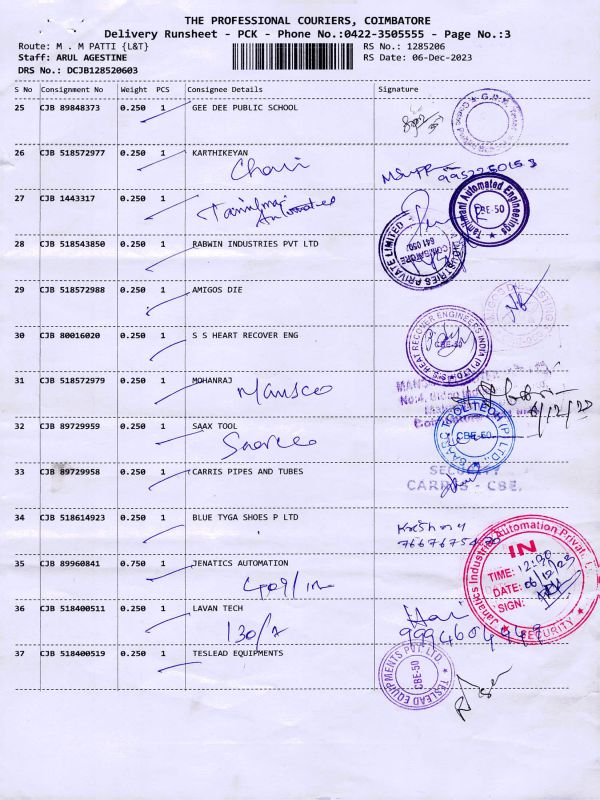 THE PROFESSIONAL COURIERS, COIMBATORE
Delivery Runsheet - PCK - Phone No.:0422-3505555 - Page No.:3
Route: M . M PATTI {L&T} RS No.: 1285206
Staff: ARUL AGESTINE RS Date: 06-Dec-2023
DRS No.: DCJB128520603
S No Consignment No Weight PCS Consignee Details Signature
25 CJB 89848373 0.250 1 GEE DEE PUBLIC SCHOOL
26 CJB 518572977 0.250 1 KARTHIKEYAN
27 CJB 1443317 0.250 1
Tamilmani Automated Engineerings
CBE-50
28 CJB 518543850 0.250 1 RABWIN INDUSTRIES PVT LTD
INDUSTRIES PRIVATE LIMITED
COIMBATORE
641 050
29 CJB 518572988 0.250 1 AMIGOS DIE
30 CJB 80016020 0.250 1 S S HEART RECOVER ENG
S.S. HEAT RECOVER ENGINEERS INDIA (P) LTD
CBE-50
31 CJB 518572979 0.250 1 MOHANRAJ
Mansco
6/12/23
32 CJB 89729959 0.250 1 SAAX TOOL
SAARC TOOLITECH (P) LTD
CBE-50
33 CJB 89729958 0.250 1 CARRIS PIPES AND TUBES
SECURITY
CARRIS - CBE.
34 CJB 518614923 0.250 1 BLUE TYGA SHOES P LTD
35 CJB 89960841 0.750 1 JENATICS AUTOMATION
Janatics Industries Automation Private
IN
TIME: 12:30
DATE: 06/12/23
SIGN:
SECURITY
36 CJB 518400511 0.250 1 LAVAN TECH
130/2
Hari
9994604949
37 CJB 518400519 0.250 1 TESLEAD EQUIPMENTS
TESLEAD EQUIPMENTS PVT. LTD
CBE-50